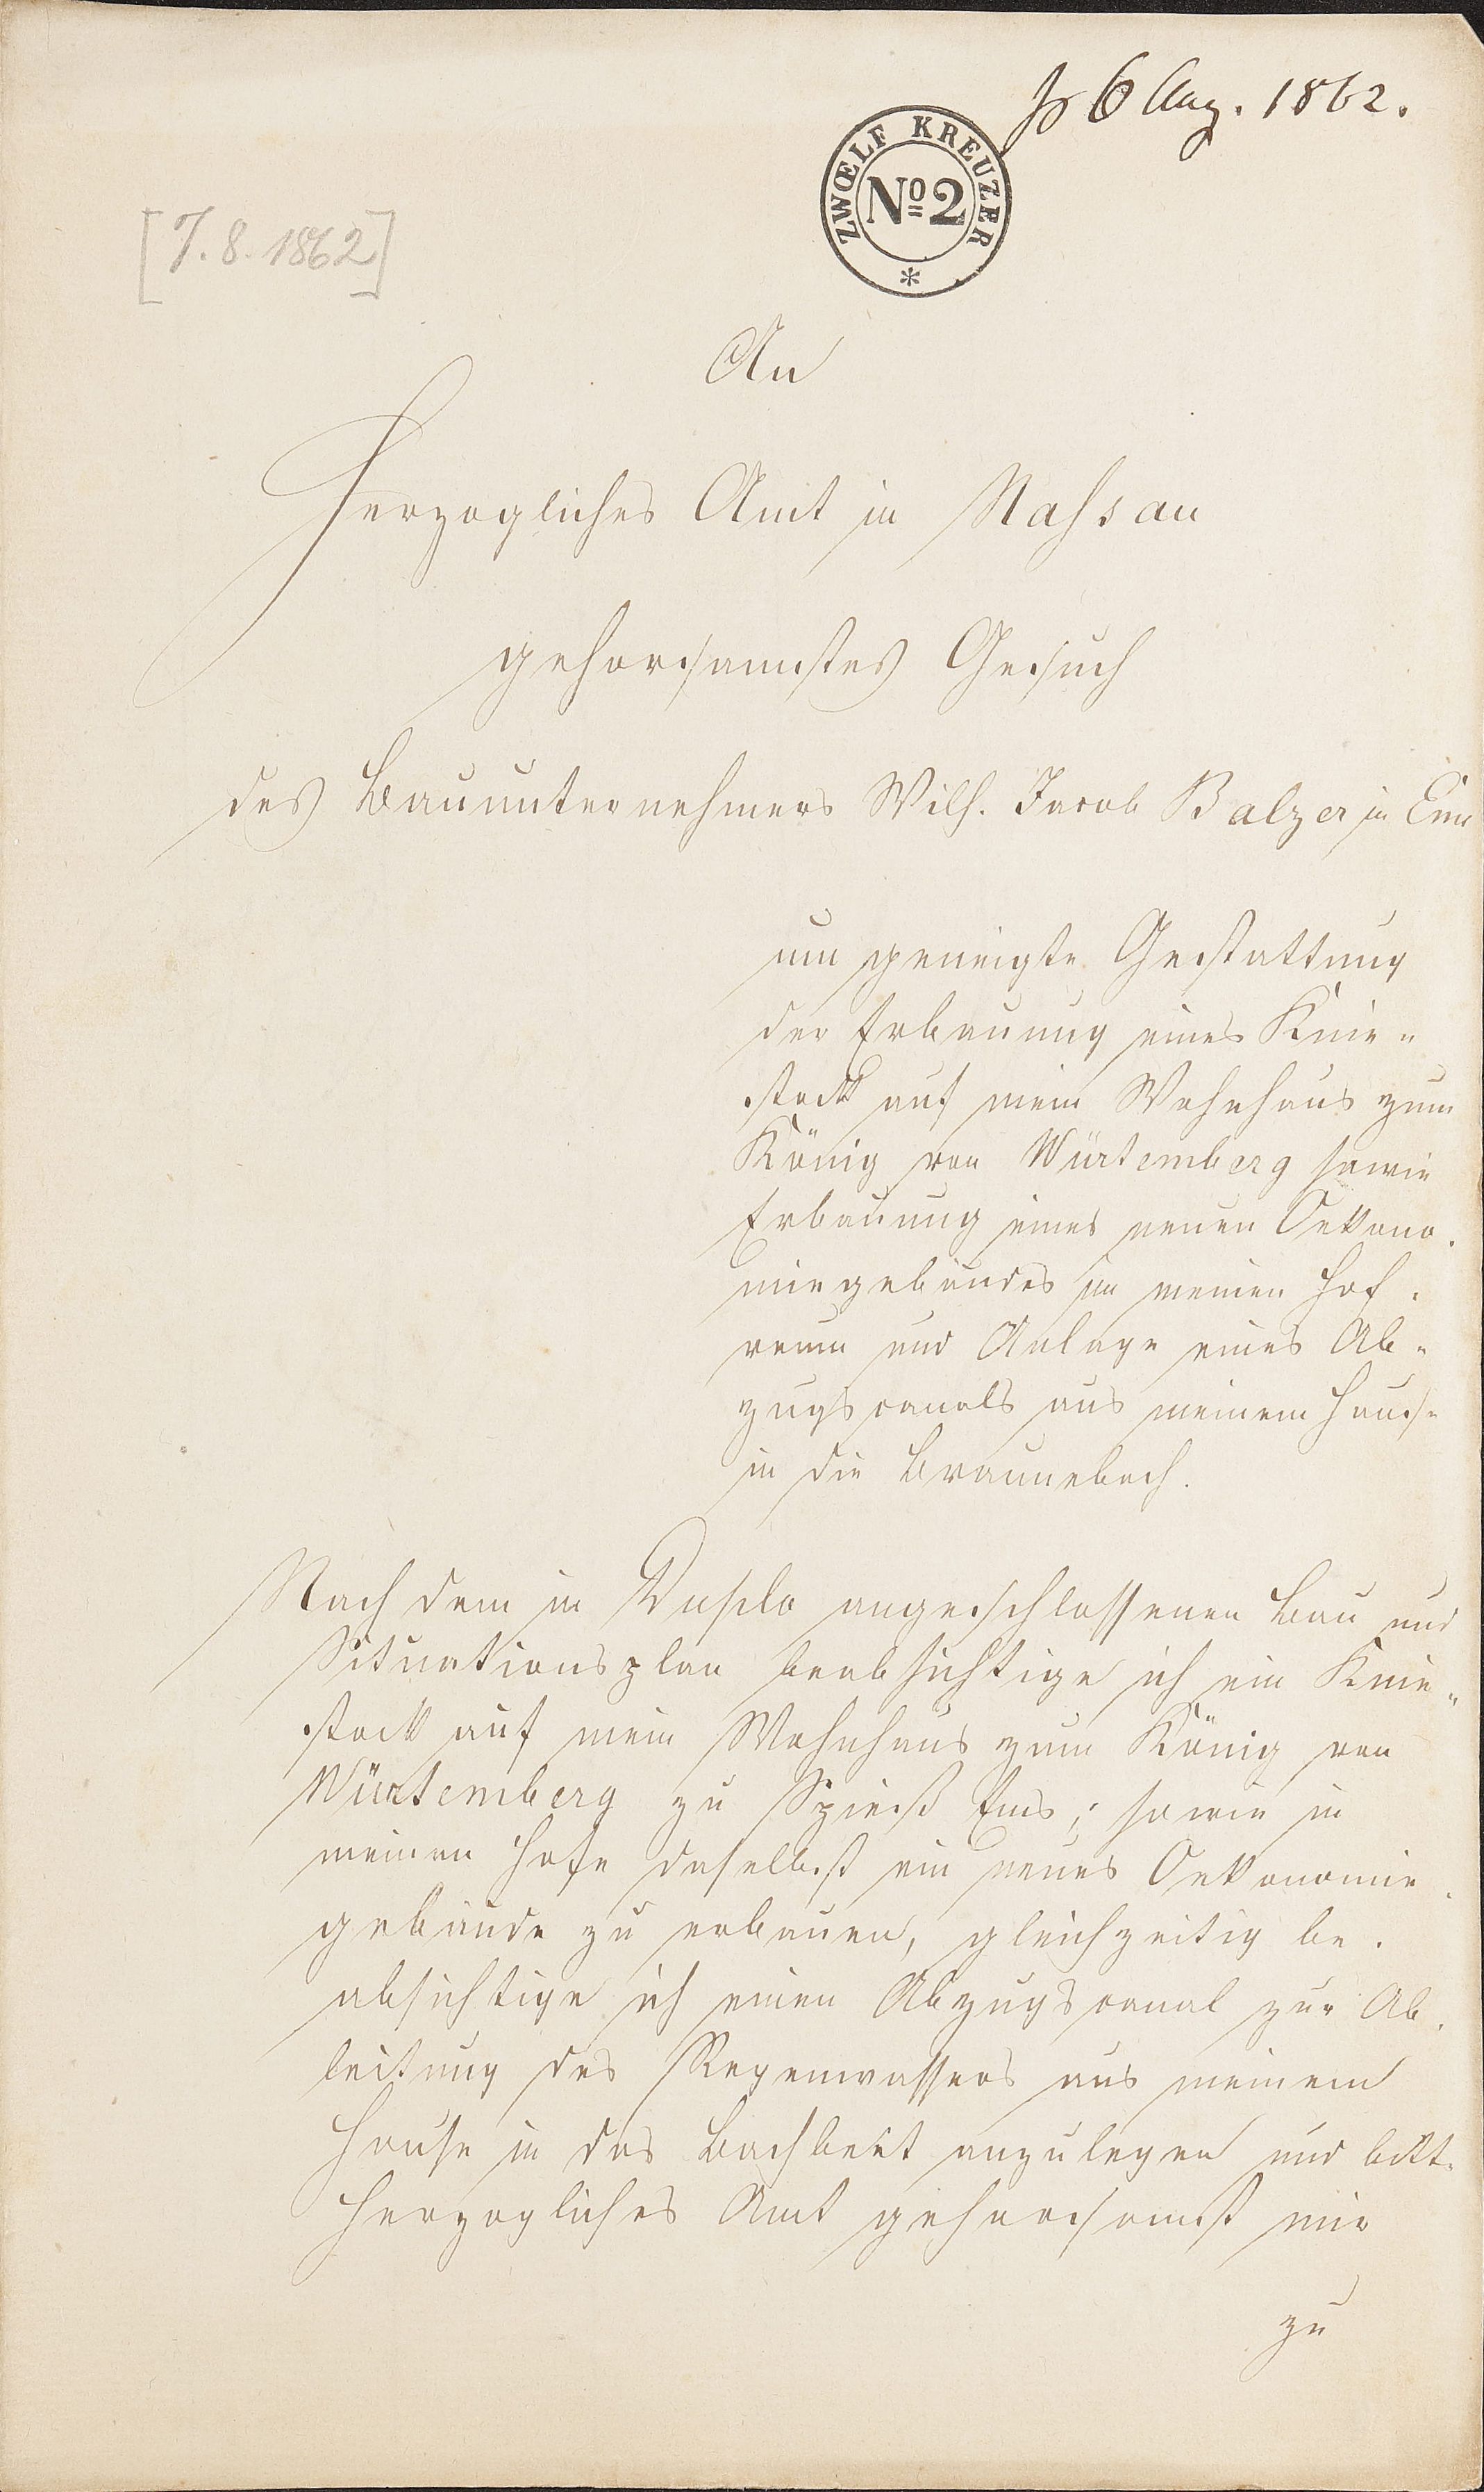 6 Aug. 1862.
ZWŒLF KREUZER
No 2
*
[7.8.1862]
An
Herzogliches Amt in Nassau
gehorsamstes Gesuch
des Bauunternehmers Wilh. Jacob Balzer in Ems
um geneigte Gestattung
der Erbauung eines Knie-
stock auf mein Wohnhaus zum
König von Würtemberg sowie
Erbauung eines neuen Oekono-
miegebäudes im meinen Hof-
raum und Anlage eines Ab-
zugscanals aus meinem Hause
in die Braunebach.
Nach dem in Duplo angeschlossenen Bau und
Situationsplan beabsichtige ich ein Knie-
stock auf mein Wohnhaus zum König von
Würtemberg zu Spieß Ems; sowie in
meinen Hofe daselbst ein neues Oekonomie-
gebäude zu erbauen, gleichzeitig be-
absichtige ich einen Abzugscanal zur Ab-
leitung des Regenwassers aus meinem
Hause in das Bachbett anzulegen und bitte
Herzogliches Amt gehorsamst mir
zu